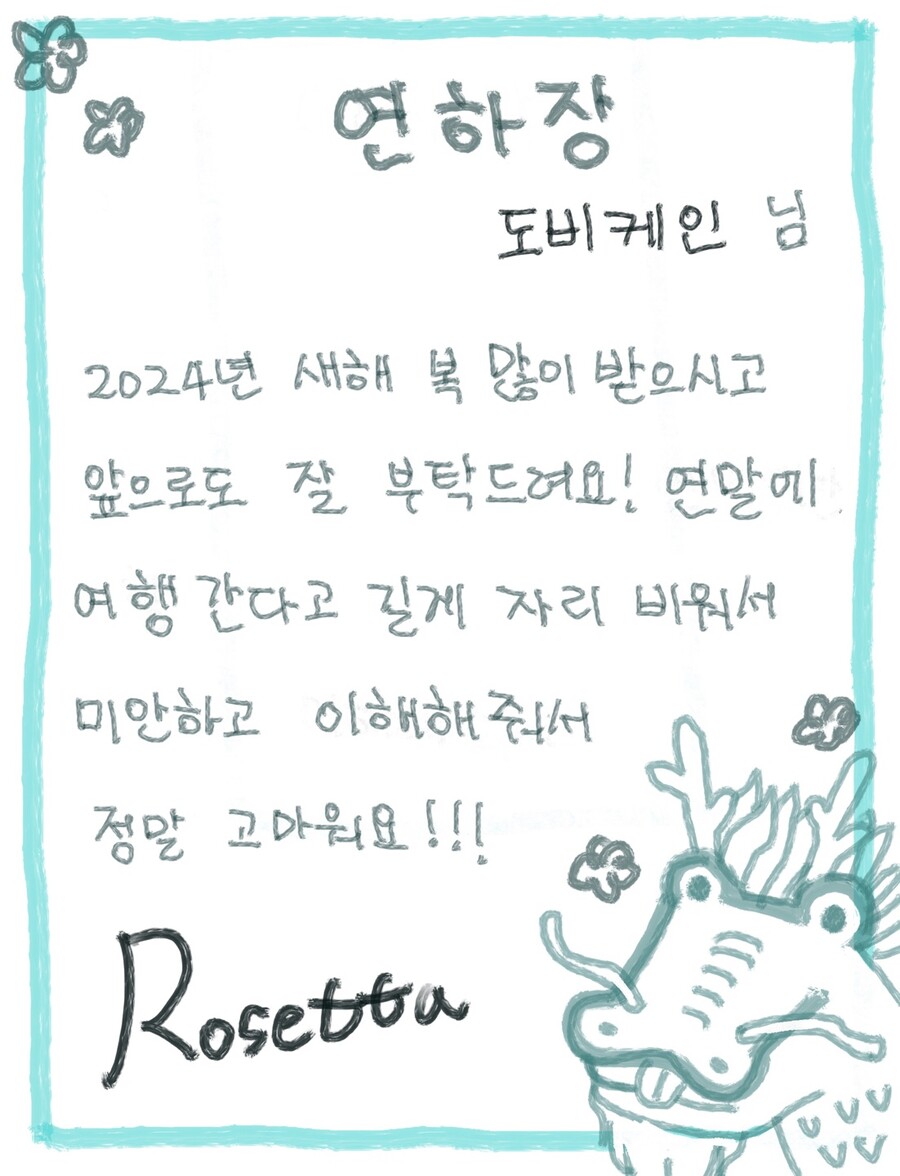 연하장
도비케인 님
2024년 새해 복 많이 받으시고
앞으로도 잘 부탁드려요! 연말에
여행 간다고 길게 자리 비워서
미안하고 이해해줘서
정말 고마워요!!!
Rosetta